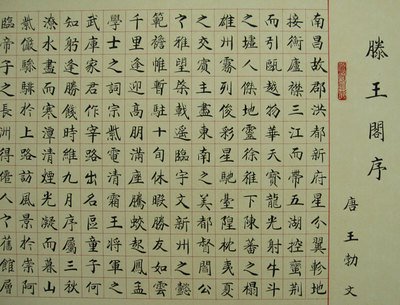 滕王閣序
唐王勃文
南昌故郡洪都新府星分翼軫地
接衡廬襟三江而帶五湖控蠻荆
而引甌越物華天寶龍光射牛斗
之墟人傑地靈徐孺下陳蕃之榻
雄州霧列俊彩星馳臺隍枕夷夏
之交賓主盡東南之美都督閻公
之雅望棨戟遥臨宇文新州之懿
範襜惟暫駐十旬休暇勝友如雲
千里逢迎高朋滿座騰蛟起鳳孟
學士之詞宗紫電清霜王將軍之
武庫家君作宰路出名區童子何
知躬逢勝餞時維九月序屬三秋
潦水盡而寒潭清煙光凝而暮山
紫儼驂騑於上路訪風景於崇阿
臨帝子之長洲得僊人之舊館層